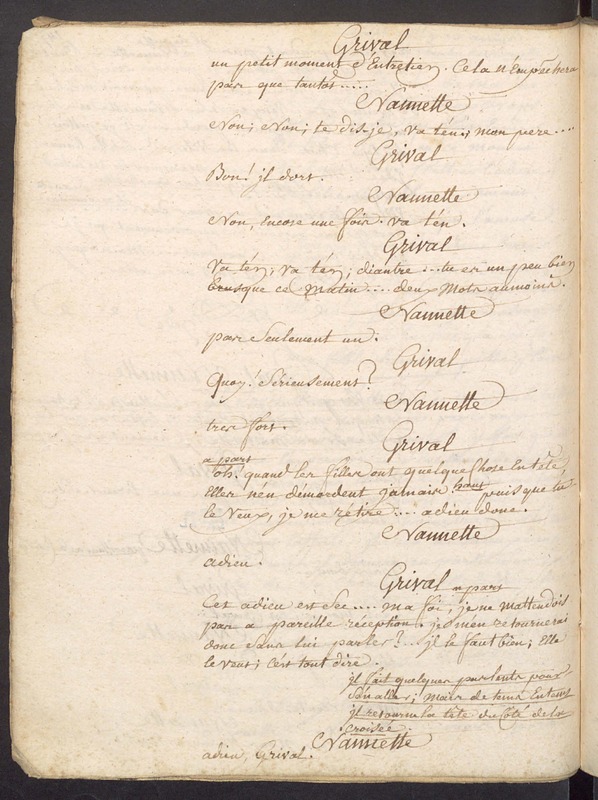 Grival
un petit moment d'Entretien. Cela n'Empêchera
pas que tantôt.....
Nannette
Non; Non; te dis-je, va t'en; mon pere....
Grival
Bon! jl dort.
Nannette
Non, encore une fois. va t'én.
Grival
Va t'én, va t'én; diantre... tu es un peu bien
brusque ce Matin.... deux Mots aumoins.
Nannette
pas Seulement un.
Grival
Quoy! Sérieusement?
Nannette
tres fort.
Grival
a part
oh! quand les filles ont quelque Chose En tête,
Elles n'en démordent jamais. haut puis que tu
le Veux, je me rétire.... adieu donc.
Nannette
adieu.
Grival a part
Cet adieu est Sec.... ma foi, je ne m'attendois
pas a pareille réception. je m'en retournerai
donc Sans lui parler?... jl le faut bien; Elle
le veut; c'est tout dire.
jl fait quelques pas lents pour
S'én aller; mais de tems En tems
jl retourne la tête du Côté de la
Croisée.
Nannette
adieu, Grival.